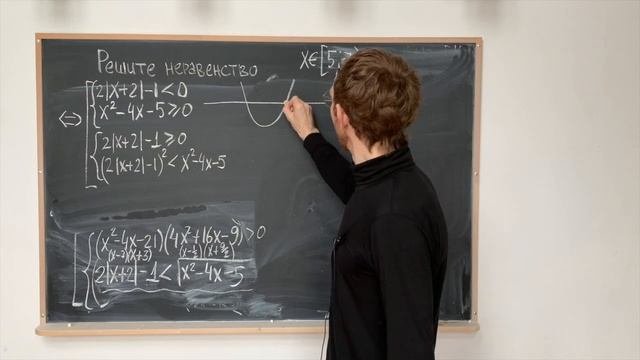 Решите неравенство
x∈[5;
2|x+2|-1<0
⇔
x²-4x-5≥0
2|x+2|-1≥0
(2|x+2|-1)²<x²-4x-5
(x²-4x-21)(4x²+16x-9)>0
(x-7)(x+3)
2|x+2|-1<√x²-4x-5